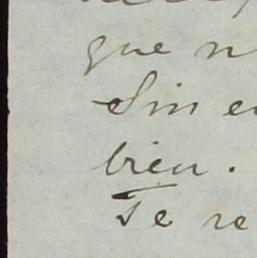 que n
Sin e
bien.
Te re